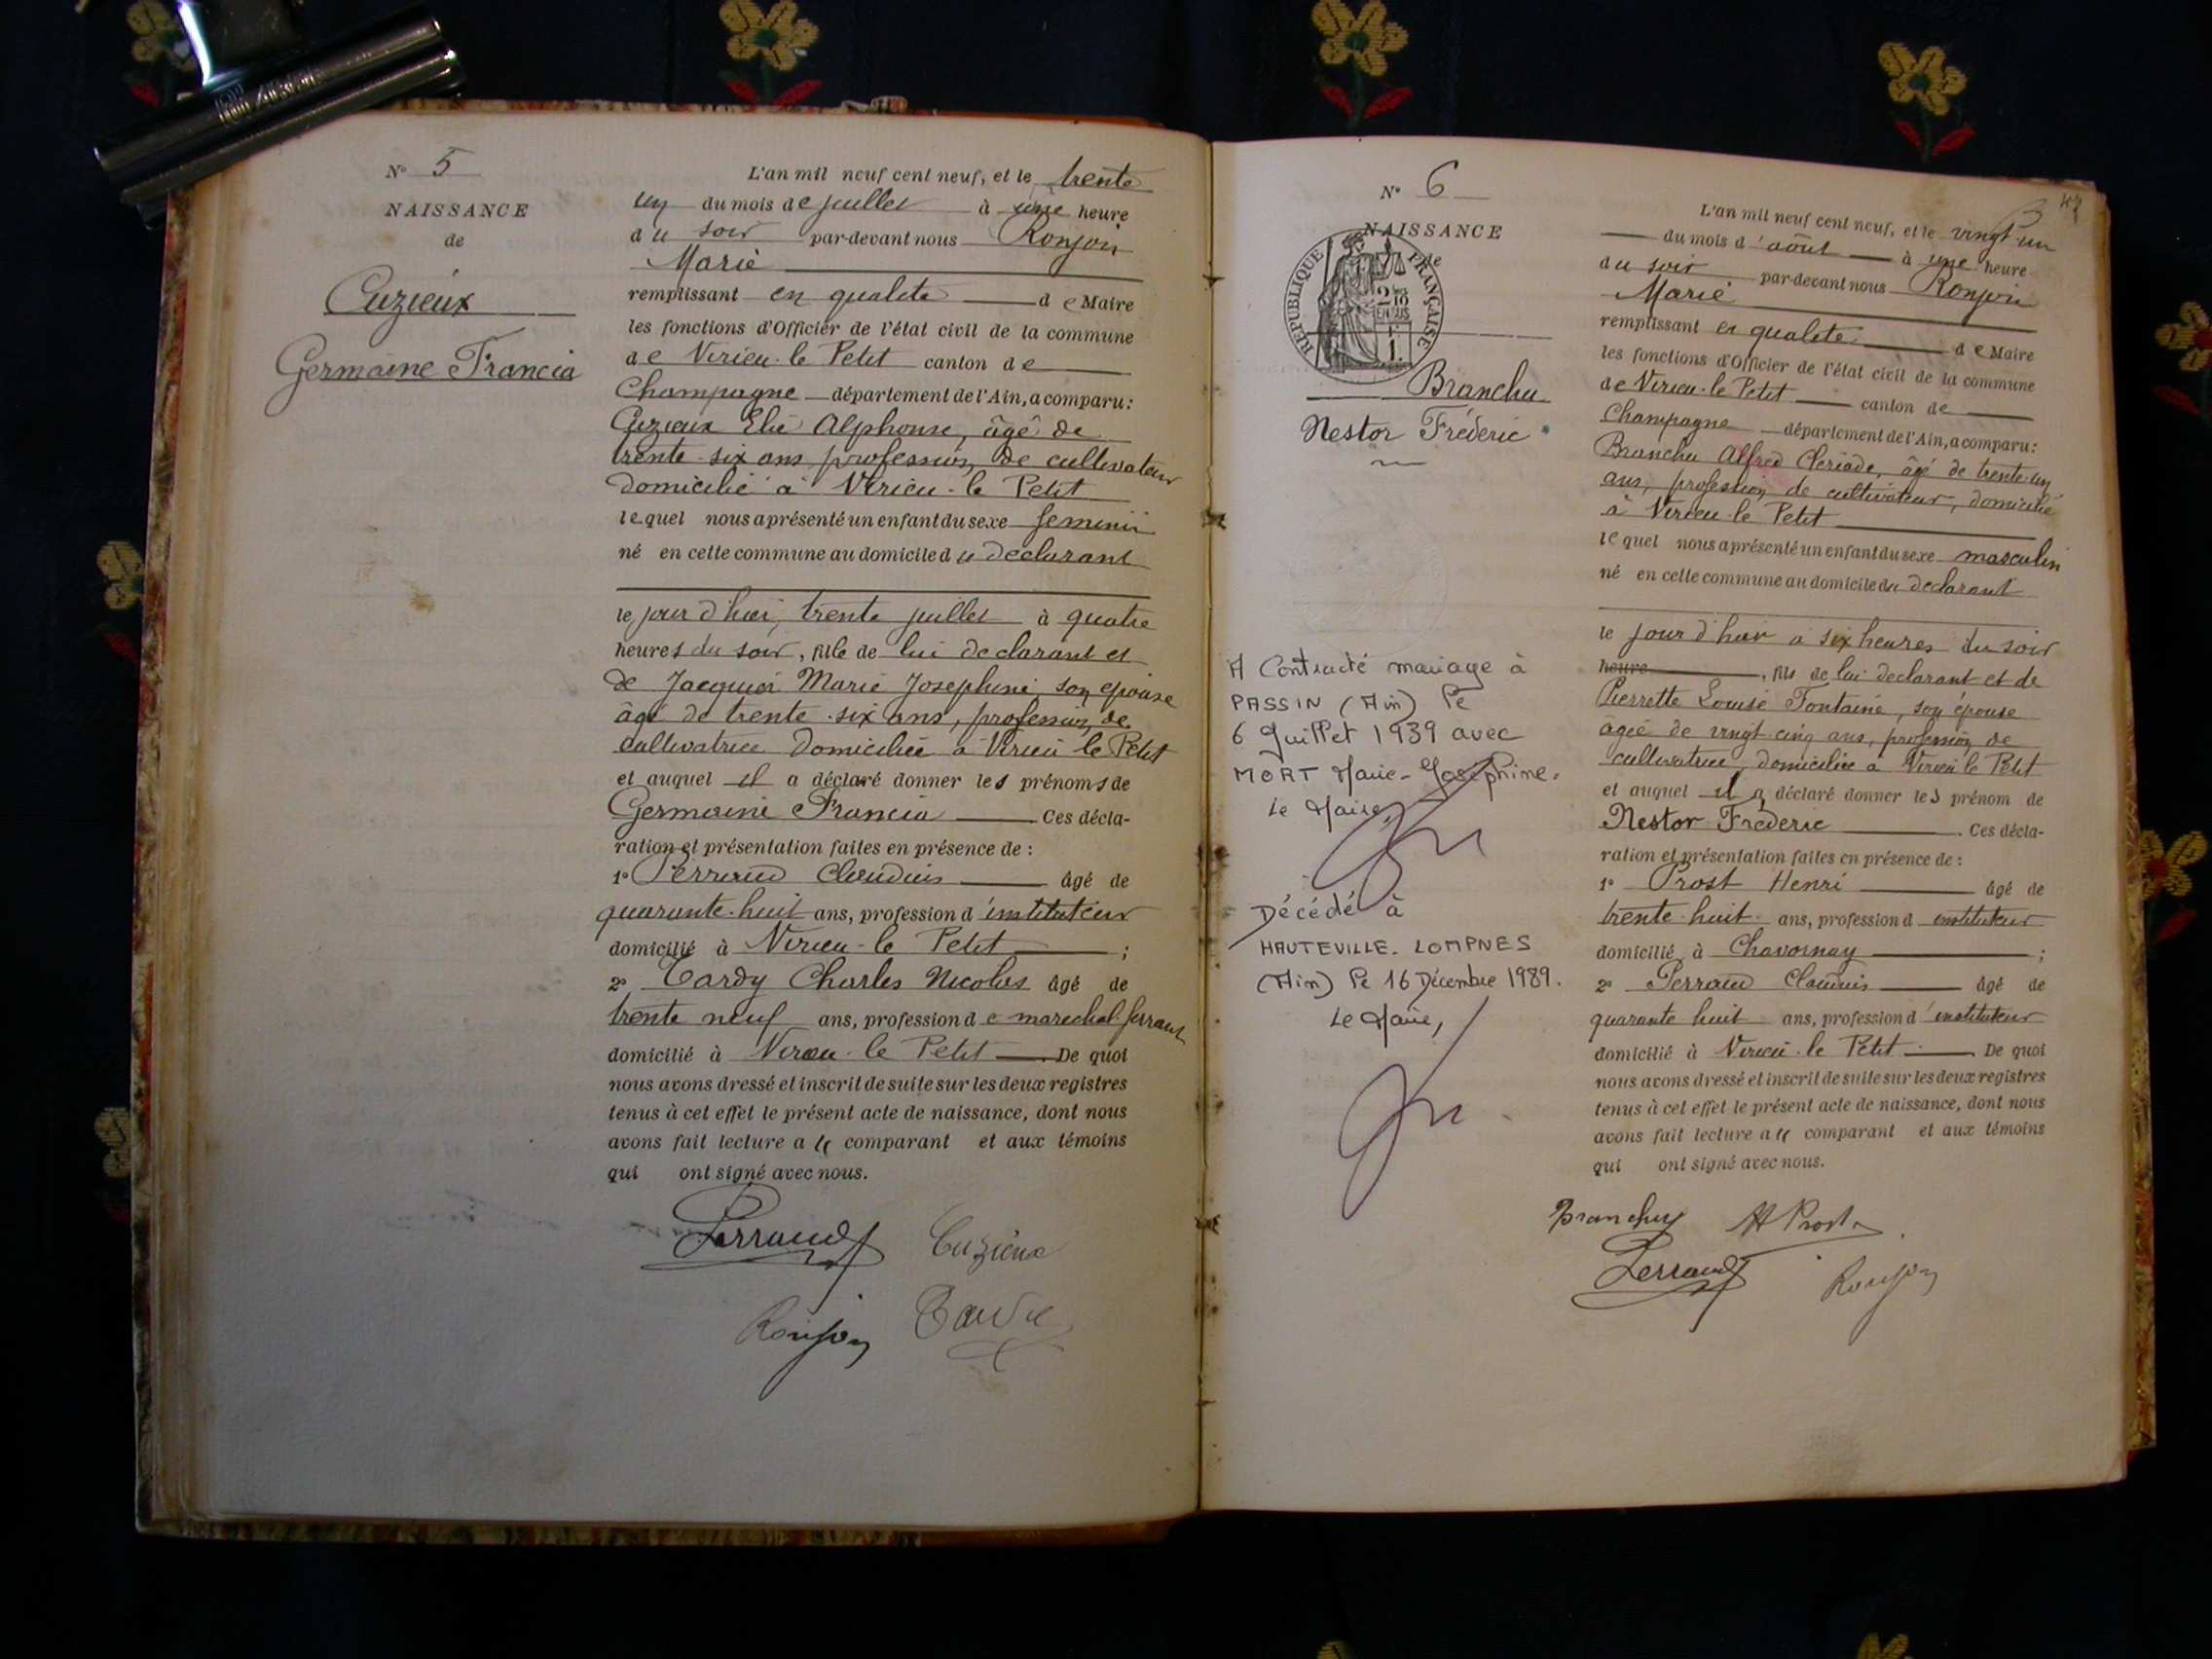 N° 5
NAISSANCE
de
Cuzieux
Germaine Francia
L'an mil neuf cent neuf, et le trente
un du mois de juillet à une heure
du soir par-devant nous Ronjon
Marie
remplissant en qualité de Maire
les fonctions d'Officier de l'état civil de la commune
de Virieu-le Petit canton de
Champagne département de l'Ain, a comparu:
Cuzieux Elie Alphonse, âgé de
trente-six ans, profession de cultivateur
domicilié à Virieu-le Petit
lequel nous a présenté un enfant du sexe féminin
né en cette commune au domicile du déclarant
le jour d'hier, trente juillet à quatre
heures du soir, fille de lui déclarant et
de Jacquier Marie Josephine, son épouse
âgé de trente-six ans, profession de
cultivatrice domiciliée à Virieu le Petit
et auquel il a déclaré donner les prénoms de
Germaine Francia Ces décla-
ration et présentation faites en présence de :
1° Perraud Claudius âgé de
quarante-huit ans, profession d'instituteur
domicilié à Virieu-le Petit ;
2° Tardy Charles Nicolas âgé de
trente neuf ans, profession de marechal ferrant
domicilié à Virieu-le Petit. De quoi
nous avons dressé et inscrit de suite sur les deux registres
tenus à cet effet le présent acte de naissance, dont nous
avons fait lecture au comparant et aux témoins
qui ont signé avec nous.
Perraud Cuzieux
Ronjon
N° 6
NAISSANCE
de
RÉPUBLIQUE FRANÇAISE
Branchu
Nestor Fréderic
A Contracté mariage à
PASSIN (Ain) le
6 Juillet 1939 avec
MORT Marie-Josephine.
Le Maire,
Décédé à
HAUTEVILLE-LOMPNES
(Ain) le 16 Décembre 1989.
Le Maire,
L'an mil neuf cent neuf, et le vingt-un
du mois d'août à une heure
du soir par-devant nous Ronjon
Marie
remplissant en qualité de Maire
les fonctions d'Officier de l'état civil de la commune
de Virieu-le Petit canton de
Champagne département de l'Ain, a comparu:
Branchu Alfred Cleriade, âgé de trente-un
ans, profession de cultivateur, domicilié
à Virieu-le Petit
lequel nous a présenté un enfant du sexe masculin
né en cette commune au domicile du déclarant
le jour d'hier à six heures du soir
heure, fils de lui déclarant et de
Pierrette Louise Fontaine, son épouse
âgée de vingt-cinq ans, profession de
cultivatrice, domiciliée à Virieu le Petit
et auquel il a déclaré donner les prénom de
Nestor Fréderic. Ces décla-
ration et présentation faites en présence de :
1° Prost Henri âgé de
trente-huit ans, profession d'instituteur
domicilié à Chavornay ;
2° Perraud Claudius âgé de
quarante huit ans, profession d'instituteur
domicilié à Virieu-le Petit. De quoi
nous avons dressé et inscrit de suite sur les deux registres
tenus à cet effet le présent acte de naissance, dont nous
avons fait lecture au comparant et aux témoins
qui ont signé avec nous.
Branchu H Prost
Perraud Ronjon